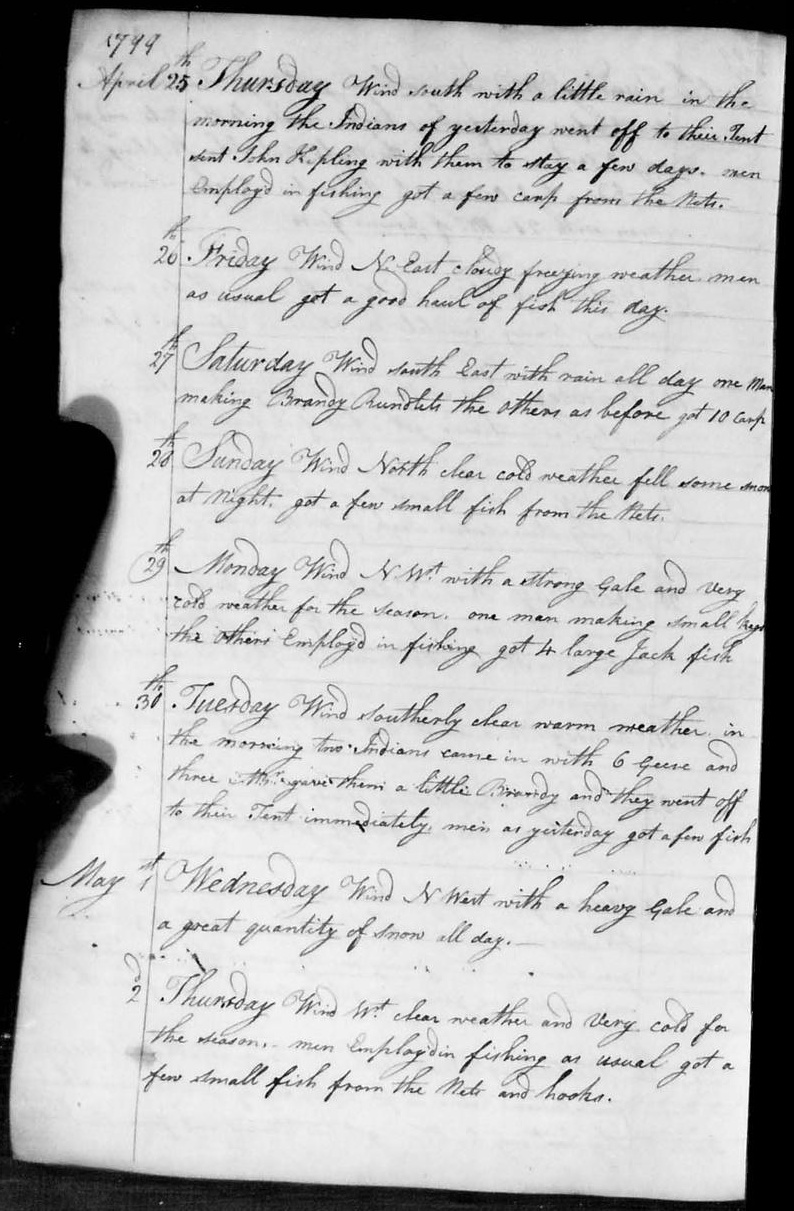 1799
April 25th Thursday Wind south with a little rain in the
morning the Indians of yesterday went off to their Tent
sent John Kipling with them to stay a few days. men
Employ'd in fishing got a few carp from the Nets.
26th Friday Wind N. East cloudy freezing weather men
as usual got a good haul of fish this day.
27th Saturday Wind south East with rain all day one Man
making Brandy Rundlets the others as before got 10 Carp
28th Sunday Wind North clear cold weather fell some snow
at Night. got a few small fish from the Nets.
29th Monday Wind N.Wt with a strong Gale and Very
cold weather for the season. one man making small kegs
the others Employ'd in fishing got 4 large Jack fish
30th Tuesday Wind southerly clear warm weather. in
the morning two Indians came in with 6 Geese and
three gave them a little Brandy and they went off
to their Tent immediately. men as yesterday got a few fish
May 1st Wednesday Wind N West with a heavy Gale and
a great quantity of snow all day.
2d Thursday Wind Wt clear weather and Very cold for
the season. men Employ'd in fishing as usual got a
few small fish from the Nets and hooks.